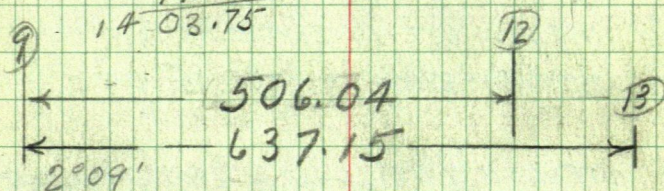 14 03.75
9 12
506.04 13
637.15
2°09'